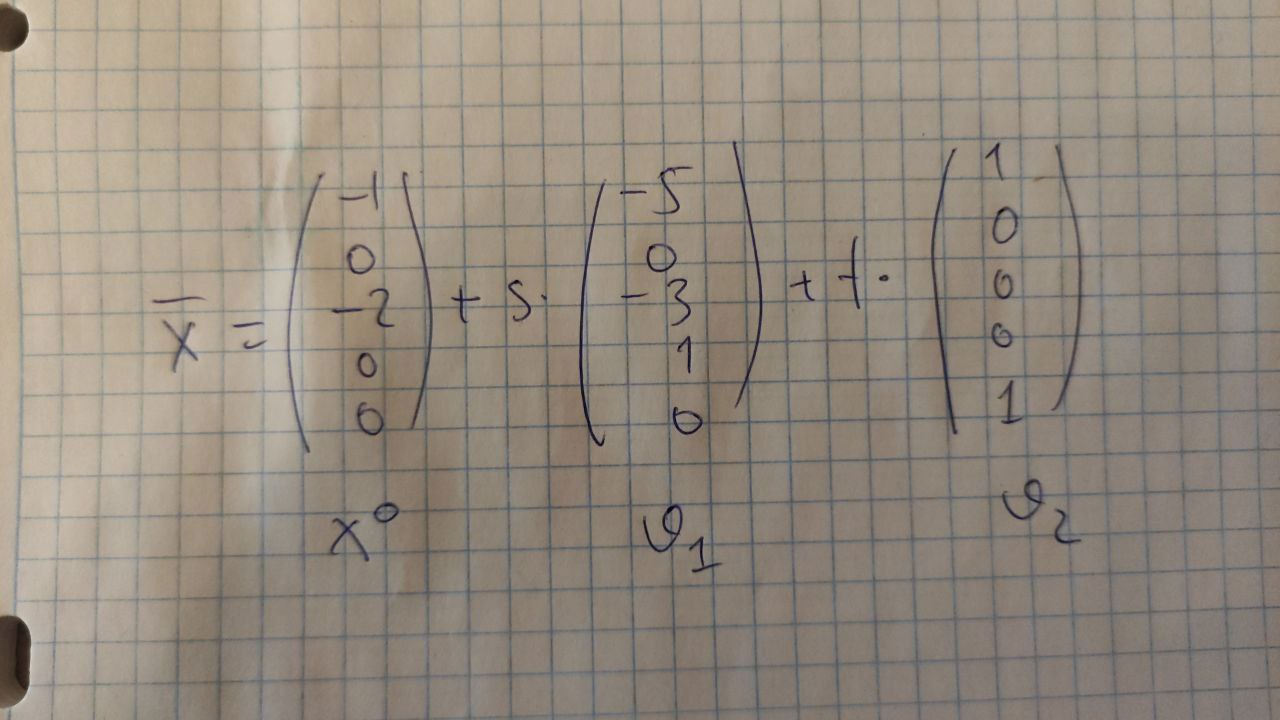 x̄ = (-1 0 -2 0 0) + s· (-5 0 -3 1 0) + t· (1 0 0 0 1)
x⁰ v₁ v₂